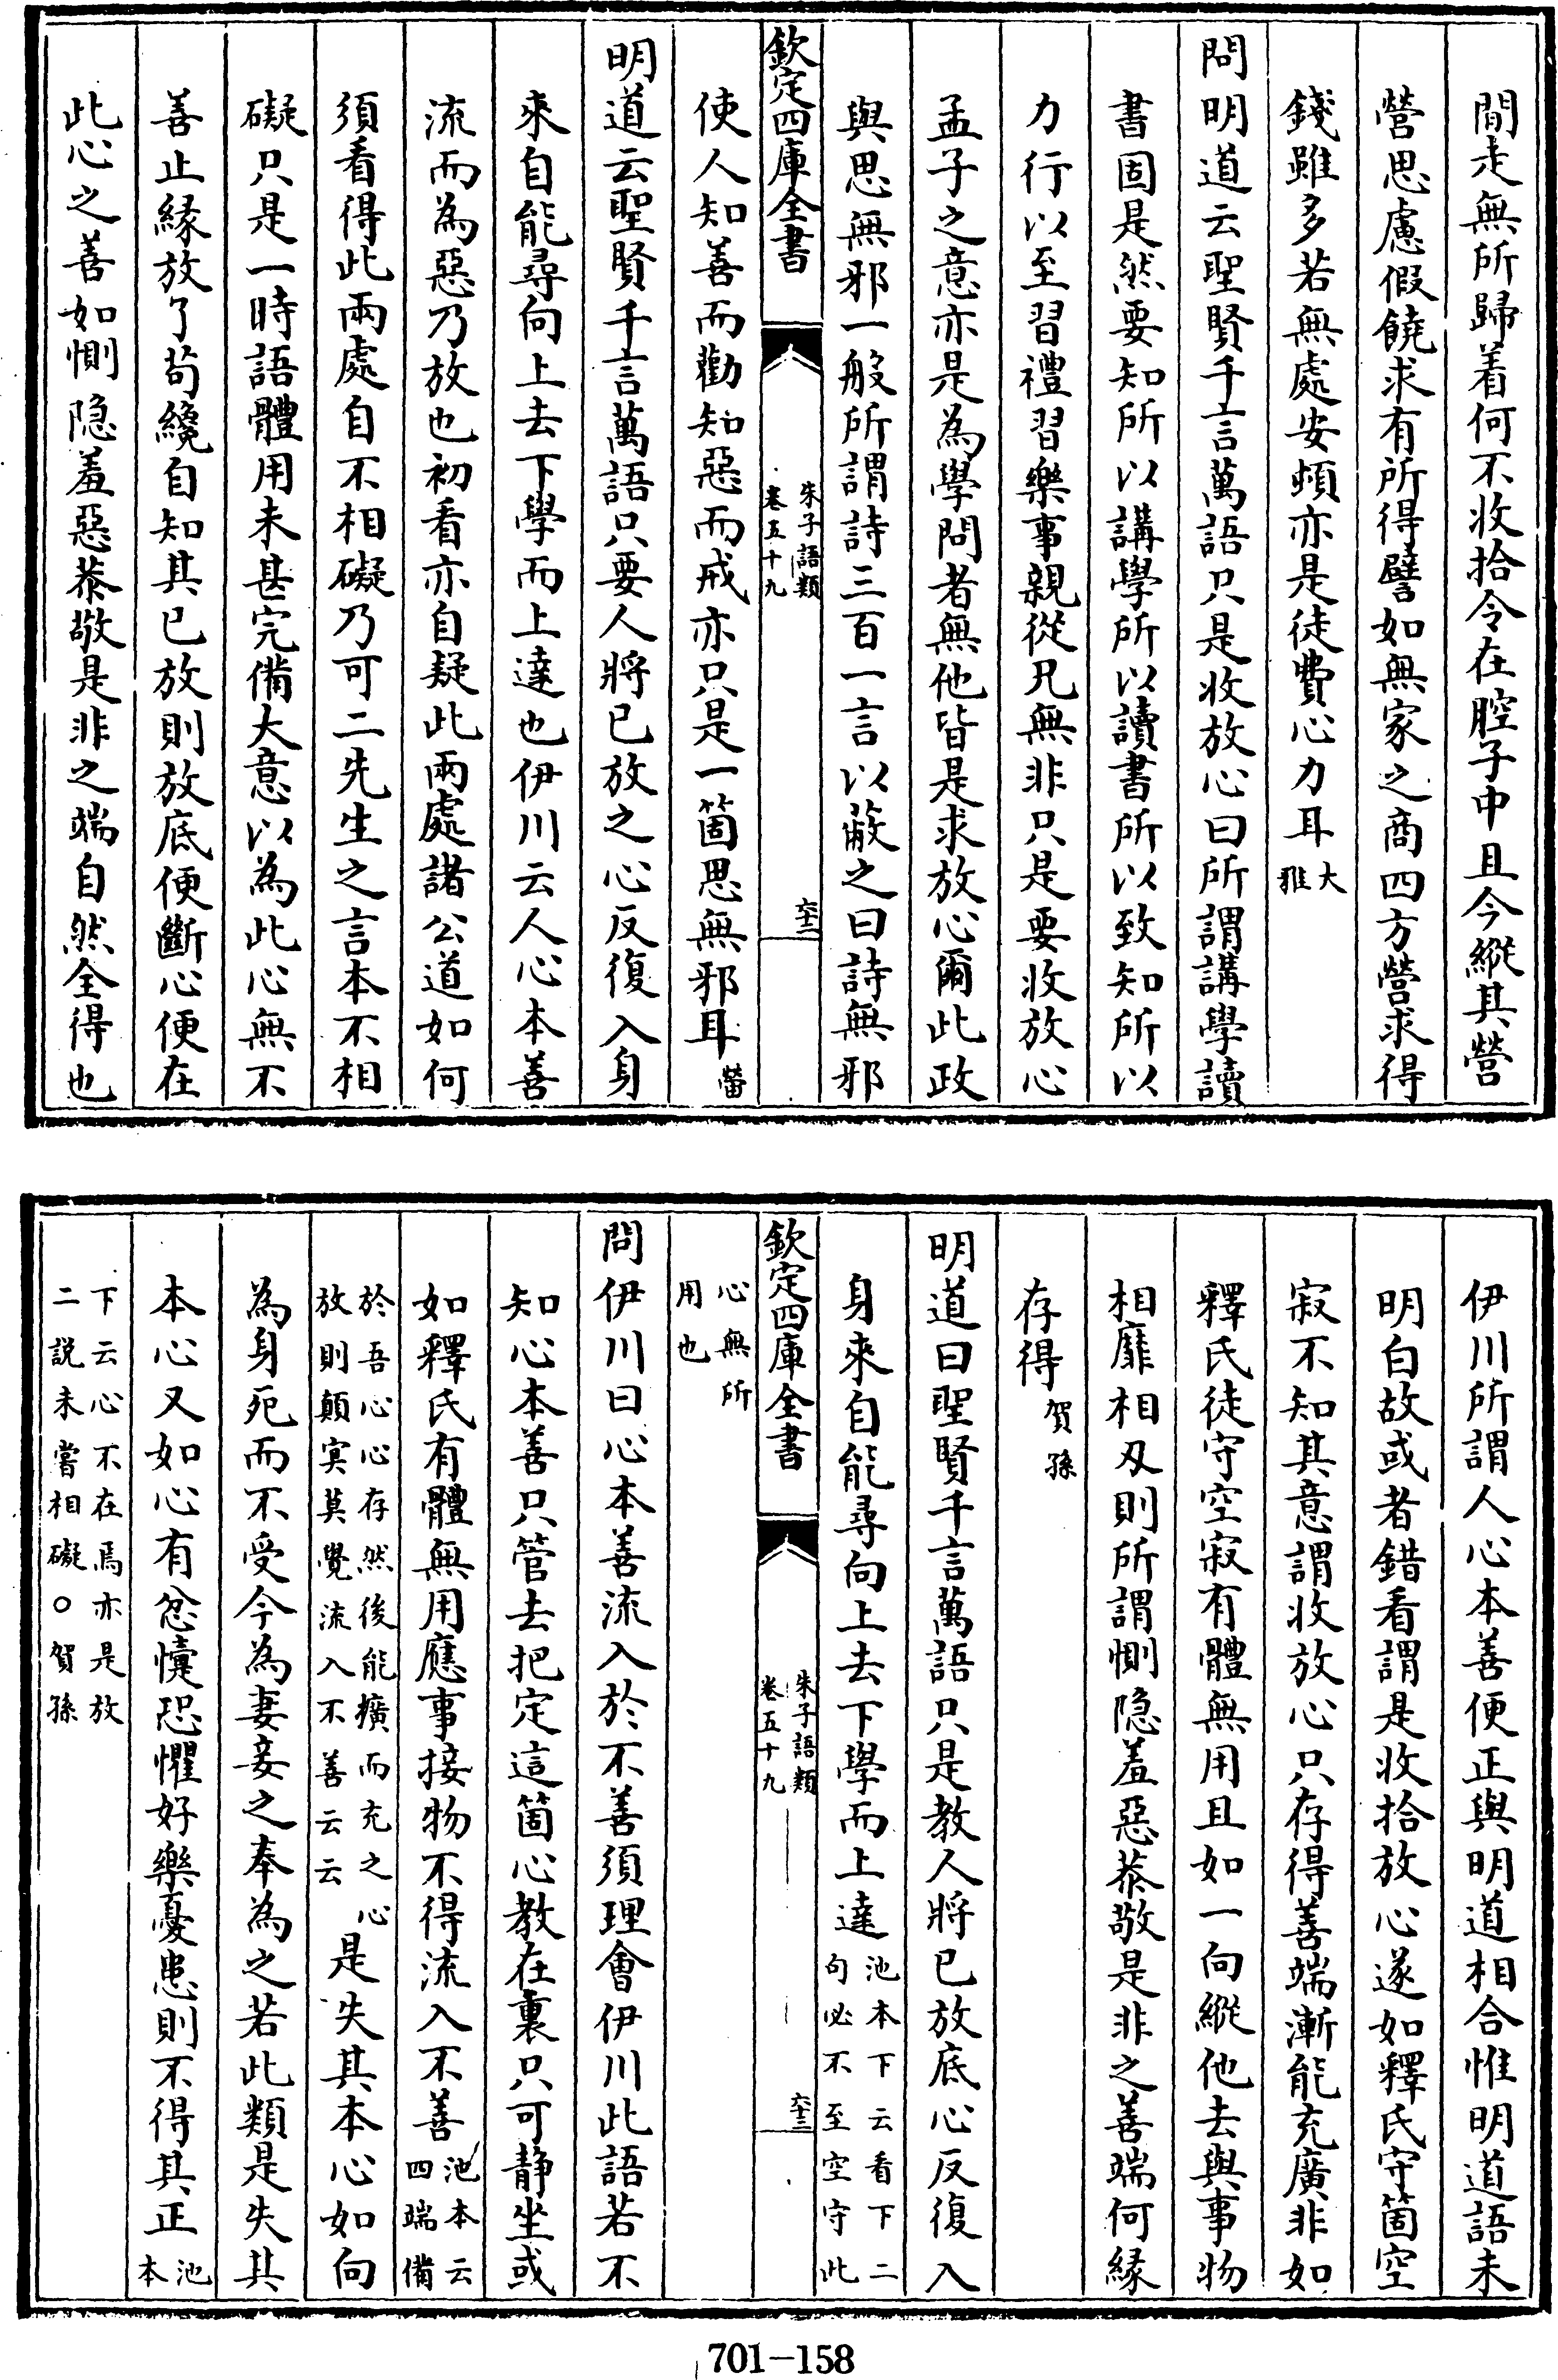 閒走無所歸着何不收拾令在腔子中且今縱其營
營思慮假饒求有所得譬如無家之商四方營求得
錢雖多若無處安頓亦是徒費心力耳大雅
問明道云聖賢千言萬語只是收放心曰所謂講學讀
書固是然要知所以講學所以讀書所以致知所以
力行以至習禮習樂事親從兄無非只是要收放心
孟子之意亦是為學問者無他皆是求放心爾此政
與思無邪一般所謂詩三百一言以蔽之曰詩無邪
欽定四庫全書
朱子語類
卷五十九
六十二
使人知善而勸知惡而戒亦只是一箇思無邪耳㽦
明道云聖賢千言萬語只要人將已放之心反復入身
來自能尋向上去下學而上達也伊川云人心本善
流而為惡乃放也初看亦自疑此兩處諸公道如何
須看得此兩處自不相礙乃可二先生之言本不相
礙只是一時語體用未甚完備大意以為此心無不
善止緣放了苟纔自知其已放則放底便斷心便在
此心之善如惻隐羞惡恭敬是非之端自然全得也
伊川所謂人心本善便正與明道相合惟明道語未
明白故或者錯看謂是收拾放心遂如釋氏守箇空
寂不知其意謂收放心只存得善端漸能充廣非如
釋氏徒守空寂有體無用且如一向縱他去與事物
相靡相刄則所謂惻隐羞惡恭敬是非之善端何緣
存得賀孫
明道曰聖賢千言萬語只是教人將已放底心反復入
身來自能尋向上去下學而上達池本下云看下二
句必不至空守此
欽定四庫全書
朱子語類
卷五十九
六十三
心無所
用也
問伊川曰心本善流入於不善須理會伊川此語若不
知心本善只管去把定這箇心教在裏只可静坐或
如釋氏有體無用應事接物不得流入不善池本云
四端備
於吾心心存然後能擴而充之心
放則顛冥莫覺流入不善云云是失其本心如向
為身死而不受今為妻妾之奉為之若此類是失其
本心又如心有忿懥恐懼好樂憂患則不得其正池
本
下云心不在焉亦是放
二説未嘗相礙○賀孫
701-158